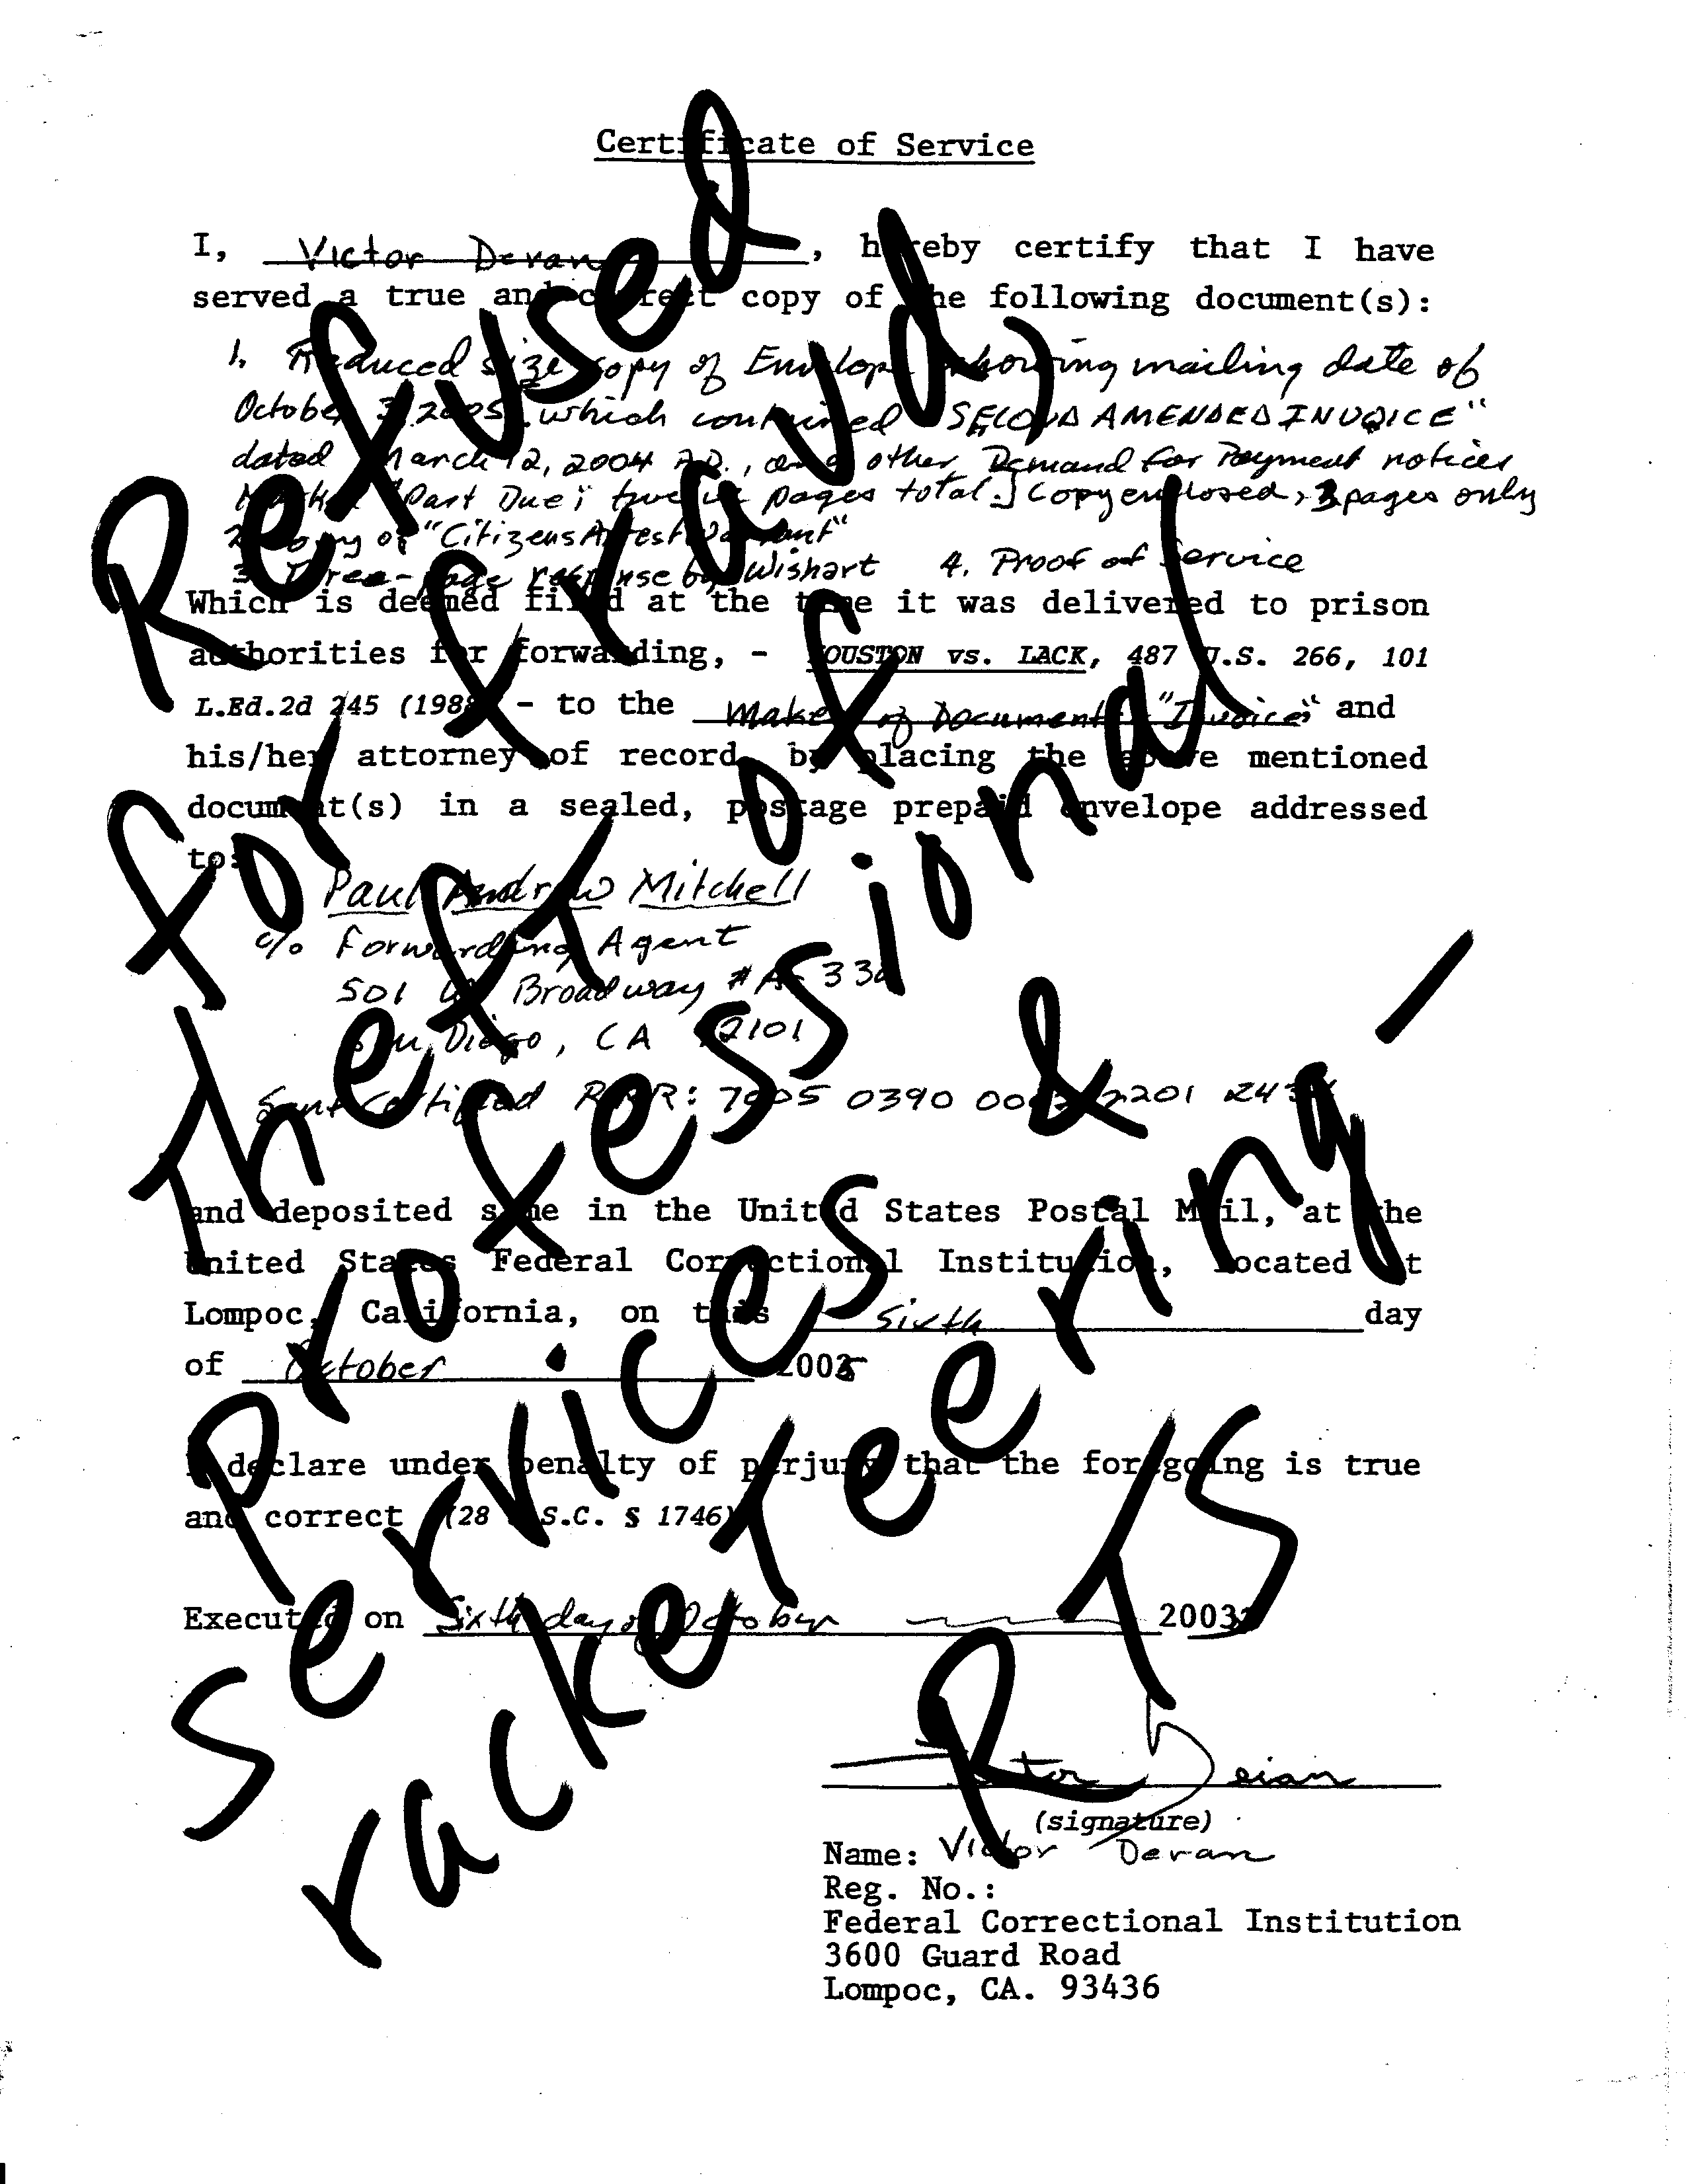 Certificate of Service
I, Victor Devan, hereby certify that I have
served a true and correct copy of the following document(s):
1. Reduced size copy of Envelope showing mailing date of
October 3, 2005, which contained "SECOND AMENDED INVOICE"
dated March 12, 2004 A.D., and other Demand for Payment notices
Past Due; twelve pages total.] Copy enclosed, 3 pages only
2. Copy of "Citizens Arrest Warrant"
3. Three-page response by Wishart 4. Proof of Service
Which is deemed filed at the time it was delivered to prison
authorities for forwarding, - HOUSTON vs. LACK, 487 U.S. 266, 101
L.Ed.2d 245 (1988) - to the Maker of Documents "Invoices" and
his/her attorney of record, by placing the above mentioned
document(s) in a sealed, postage prepaid envelope addressed
to:
Paul Andrew Mitchell
c/o Forwarding Agent
501 W. Broadway # A-332
San Diego, CA 92101
Sent Certified RRR: 7005 0390 2201
and deposited same in the United States Postal Mail, at the
United States Federal Correctional Institution, located at
Lompoc, California, on this Sixth day
of October 2005
I declare under penalty of perjury that the foregoing is true
and correct (28 U.S.C. § 1746)
Executed on Sixth day of October 2003
(signature)
Name: Victor Devan
Reg. No.:
Federal Correctional Institution
3600 Guard Road
Lompoc, CA. 93436
Refused
for fraud,
theft of
professional
services &
racketeering -
RTS